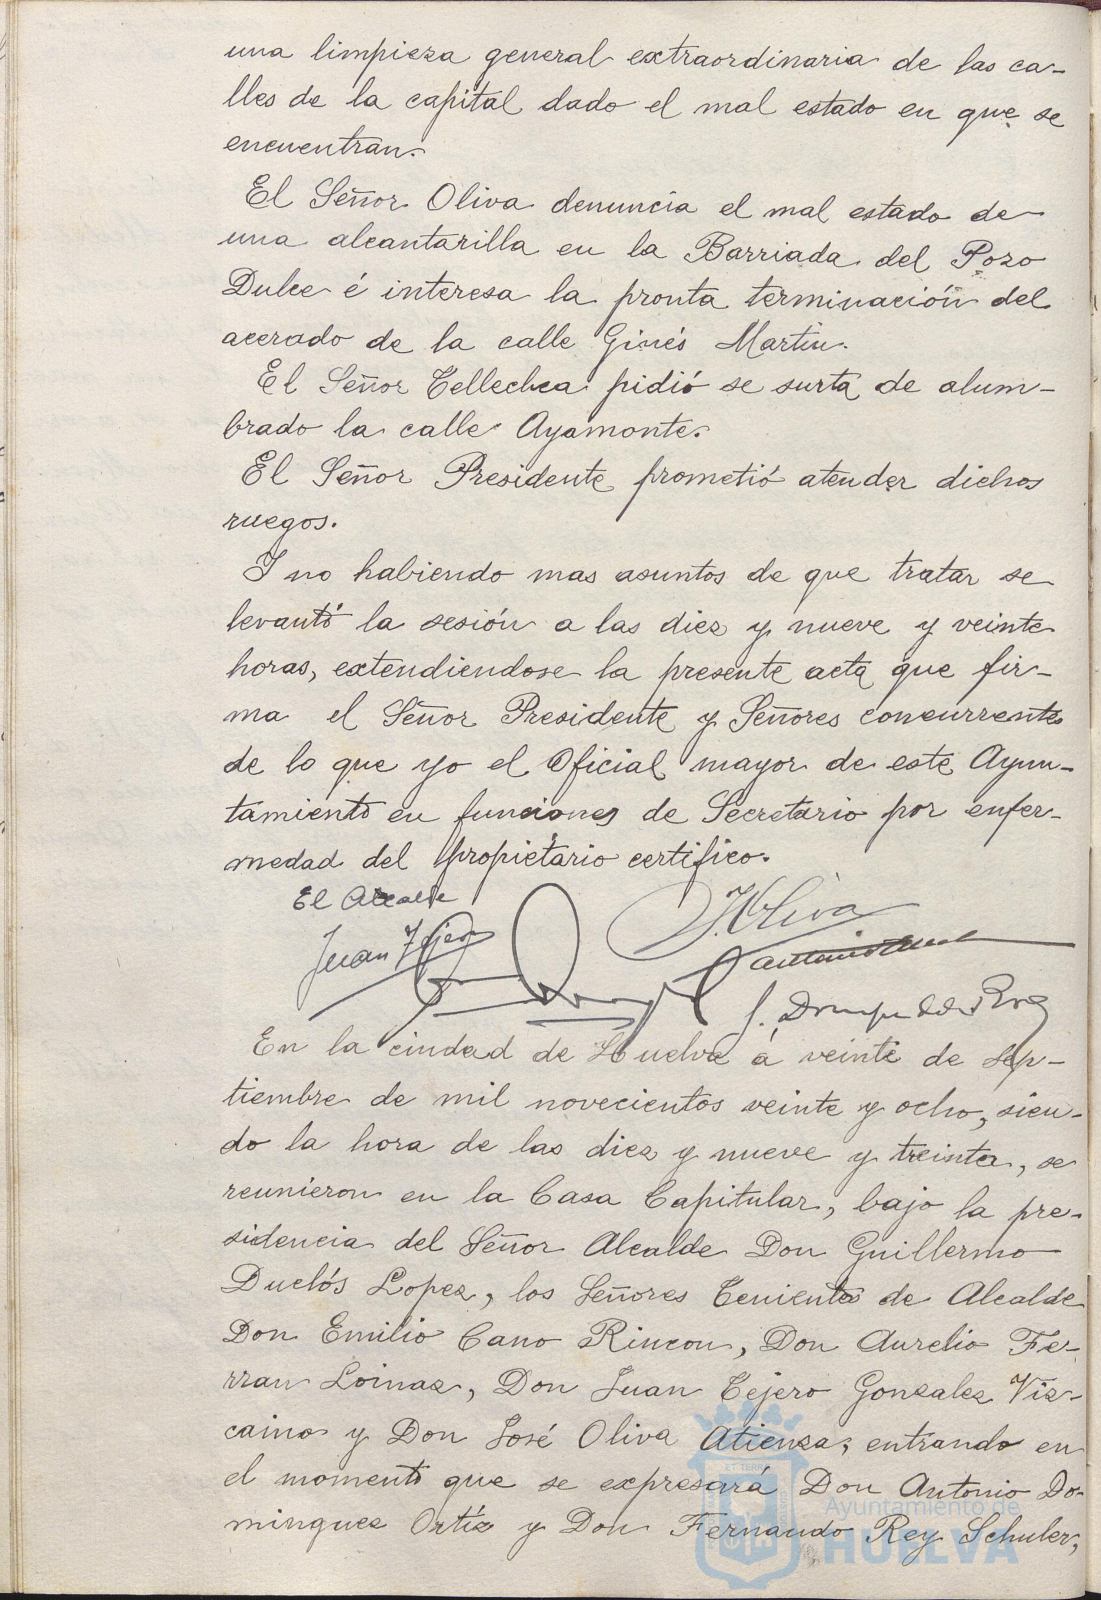 una limpieza general extraordinaria de las ca-
lles de la capital dado el mal estado en que se
encuentran.
El Señor Oliva denuncia el mal estado de
una alcantarilla en la Barriada del Pozo
Dulce é interesa la pronta terminación del
acerado de la calle Ginés Martin.
El Señor Tellechea pidió se surta de alum-
brado la calle Ayamonte.
El Señor Presidente prometió atender dichos
ruegos.
Y no habiendo mas asuntos de que tratar se
levantó la sesión a las diez y nueve y veinte
horas, extendiendose la presente acta que fir-
ma el Señor Presidente y Señores concurrentes
de lo que yo el Oficial mayor de este Ayun-
tamiento en funciones de Secretario por enfer-
medad del propietario certifico.
El Alcalde
Juan Tejero
J. Oliva
Antonio
En la ciudad de Huelva á veinte de Sep-
tiembre de mil novecientos veinte y ocho, sien-
do la hora de las diez y nueve y treinta, se
reunieron en la Casa Capitular, bajo la pre-
sidencia del Señor Alcalde Don Guillermo
Duclós Lopez, los Señores Tenientes de Alcalde
Don Emilio Cano Rincon, Don Aurelio Fe-
rran Loinaz, Don Juan Tejero Gonzalez Viz-
caino y Don José Oliva Atienza, entrando en
el momento que se expresará Don Antonio Do-
minguez Ortíz y Don Fernando Rey Schuler,
Ayuntamiento de
HUELVA